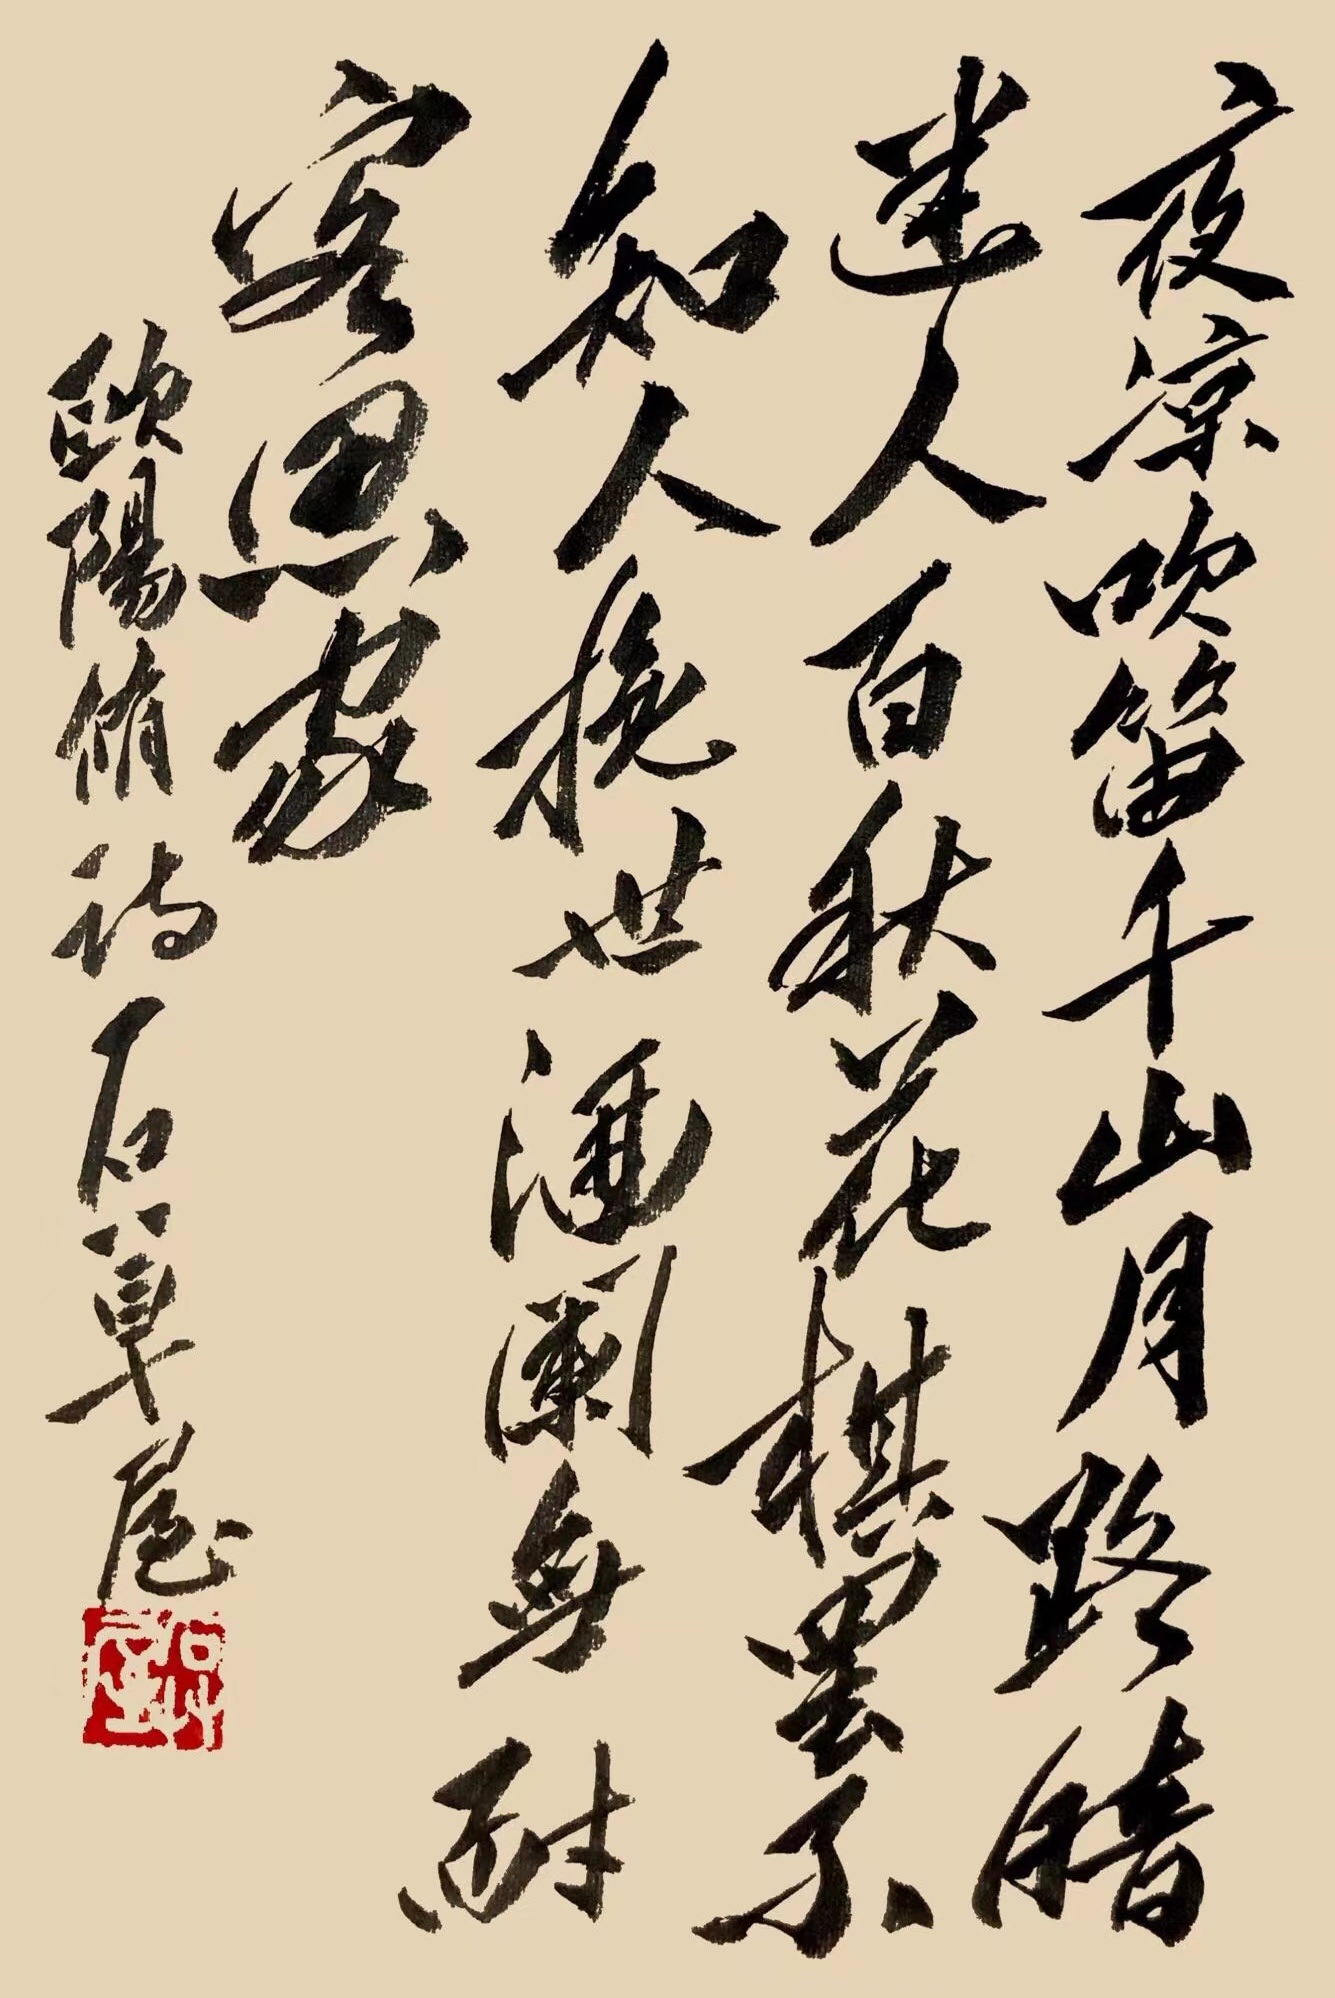 夜凉吹笛千山月路暗
迷人百秋花棋罢不
知人换世酒阑無耐
客思家
欧陽脩诗石草屋